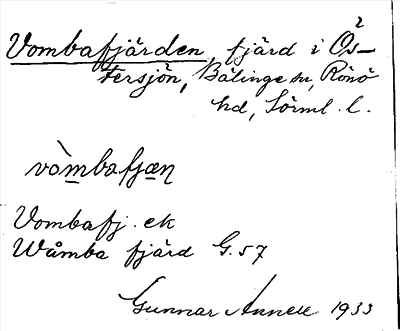 Vombafjärden, fjärd i Ös-
tersjön, Bälinge sn, Rönö
hd, Sörml. l.
vòmbafjæṇ
Vombafj. ek
Wåmba fjärd G. 57
Gunnar Annell 1933